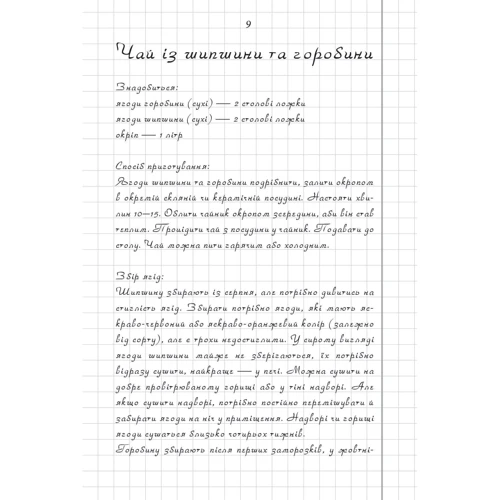 9
Чай із шипшини та горобини
Знадобиться:
ягоди горобини (сухі) — 2 столові ложки
ягоди шипшини (сухі) — 2 столові ложки
окріп — 1 літр
Спосіб приготування:
Ягоди шипшини та горобини подрібнити, залити окропом
в окремій скляній чи керамічній посудині. Настояти хви-
лин 10—15. Облити чайник окропом зсередини, аби він став
теплим. Процідити чай з посудини у чайник. Подавати до
столу. Чай можна пити гарячим або холодним.
Збір ягід:
Шипшину збирають із серпня, але потрібно дивитись на
стиглість ягід. Збирати потрібно ягоди, які мають яс-
краво-червоний або яскраво-оранжевий колір (залежно
від сорту), але є трохи недостиглими. У сирому вигляді
ягоди шипшини майже не зберігаються, їх потрібно
відразу сушити, найкраще — у печі. Можна сушити на
добре провітрюваному горищі або у тіні надворі. Але
якщо сушити надворі, потрібно постійно перемішувати й
забирати ягоди на ніч у приміщення. Надворі чи горищі
ягоди сушаться близько чотирьох тижнів.
Горобину збирають після перших заморозків, у жовтні-